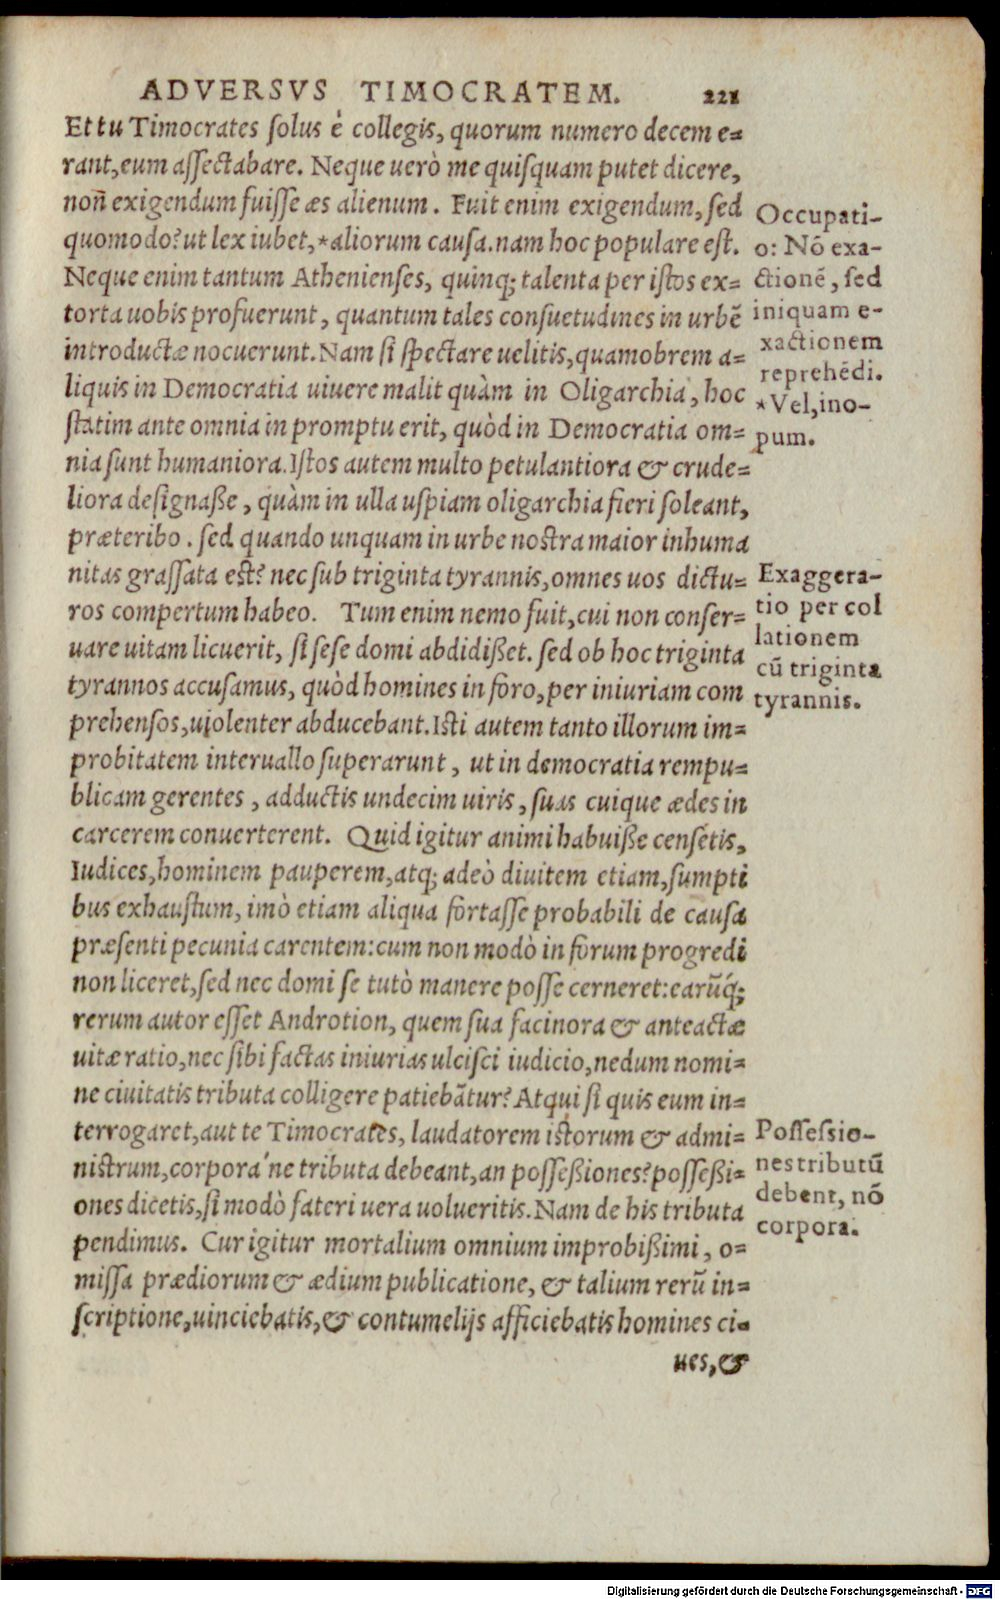 ADVERSVS TIMOCRATEM. 221
Et tu Timocrates solus è collegis, quorum numero decem e=
rant, eum assectabare. Neque uerò me quisquam putet dicere,
non̄ exigendum fuisse æs alienum. Fuit enim exigendum, sed
quomodo? ut lex iubet, *aliorum causa. nam hoc populare est.
Neque enim tantum Athenienses, quinq; talenta per istos ex=
torta uobis profuerunt, quantum tales consuetudines in urbē
introductæ nocuerunt. Nam si spectare uelitis, quamobrem a=
liquis in Democratia uiuere malit quàm in Oligarchia, hoc
statim ante omnia in promptu erit, quòd in Democratia om=
nia sunt humaniora. Istos autem multo petulantiora & crude=
liora designaße, quàm in ulla uspiam oligarchia fieri soleant,
præteribo. sed quando unquam in urbe nostra maior inhuma
nitas grassata est? nec sub triginta tyrannis, omnes uos dictu=
ros compertum habeo. Tum enim nemo fuit, cui non conser=
uare uitam licuerit, si sese domi abdidißet. sed ob hoc triginta
tyrannos accusamus, quòd homines in foro, per iniuriam com
prehensos, uiolenter abducebant. Isti autem tanto illorum im=
probitatem interuallo superarunt, ut in democratia rempu=
blicam gerentes, adductis undecim uiris, suas cuique ædes in
carcerem conuerterent. Quid igitur animi habuiße censetis,
Iudices, hominem pauperem, atq; adeò diuitem etiam, sumpti
bus exhaustum, imò etiam aliqua fortasse probabili de causa
præsenti pecunia carentem: cum non modò in forum progredi
non liceret, sed nec domi se tutò manere posse cerneret: earūq́;
rerum autor esset Androtion, quem sua facinora & anteactæ
uitæ ratio, nec sibi factas iniurias ulcisci iudicio, nedum nomi=
ne ciuitatis tributa colligere patiebātur? Atqui si quis eum in=
terrogaret, aut te Timocrates, laudatorem istorum & admi=
nistrum, corpora'ne tributa debeant, an posseßiones? posseßi=
ones dicetis, si modò fateri uera uolueritis. Nam de his tributa
pendimus. Cur igitur mortalium omnium improbißimi, o=
missa prædiorum & ædium publicatione, & talium rerū in=
scriptione, uinciebatis, & contumelijs afficiebatis homines ci=
ues, &
Occupati-
o: Nō exa-
ctionē, sed
iniquam e-
xactionem
reprehēdi.
*Vel, ino-
pum.
Exaggera-
tio per col
lationem
cū triginta
tyrannis.
Possessio-
nes tributū
debent, nō
corpora.
Digitalisierung gefördert durch die Deutsche Forschungsgemeinschaft - DFG